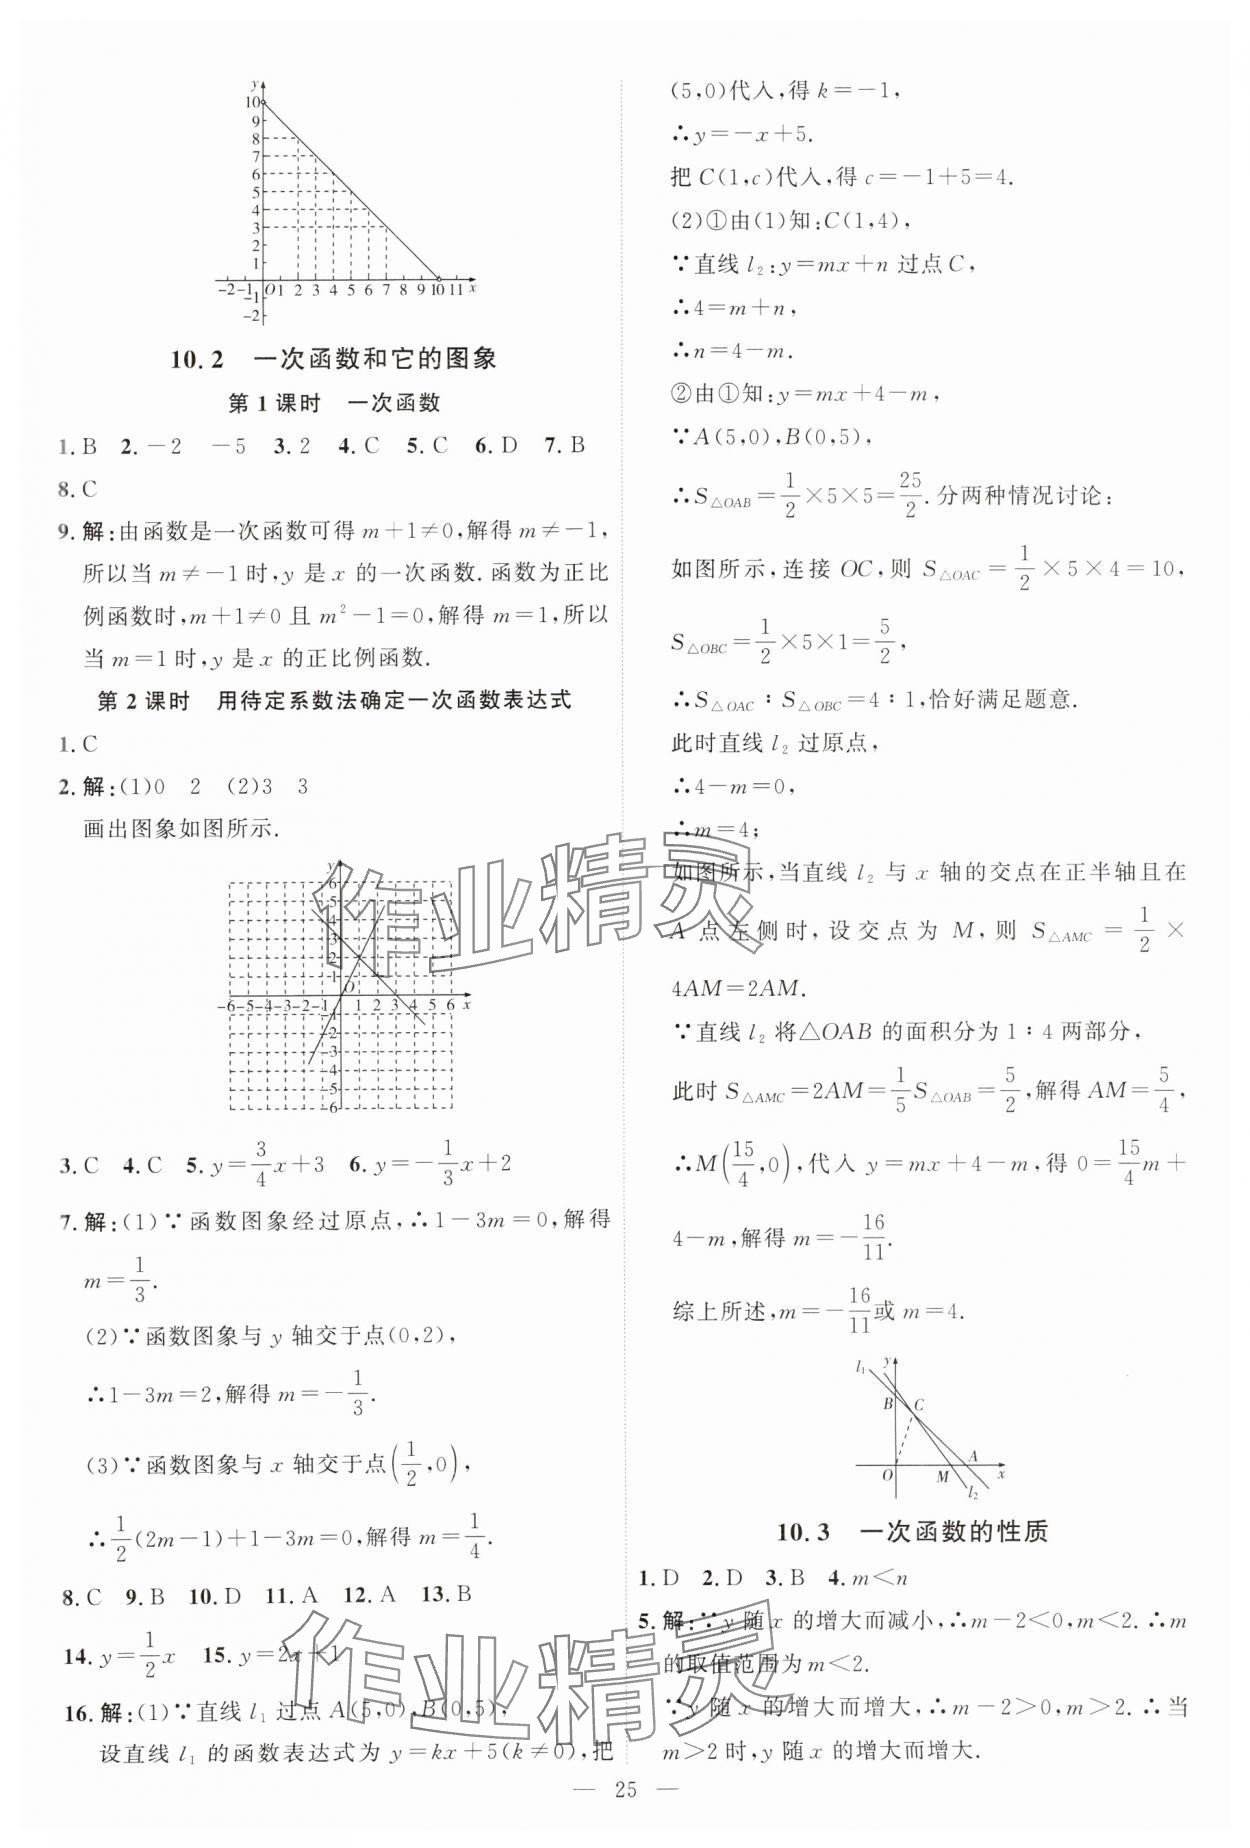 y
10
9
8
7
6
5
4
3
2
1
-2 -1 O 1 2 3 4 5 6 7 8 9 10 11 x
-1
-2
10.2 一次函数和它的图象
第1课时 一次函数
1. B 2. －2 －5 3. 2 4. C 5. C 6. D 7. B
8. C
9. 解:由函数是一次函数可得 m＋1≠0,解得 m≠－1,
所以当 m≠－1时,y 是 x 的一次函数.函数为正比
例函数时,m＋1≠0且 m²－1＝0,解得 m＝1,所以
当 m＝1时,y 是 x 的正比例函数.
第2课时 用待定系数法确定一次函数表达式
1. C
2. 解:(1)0 2 (2)3 3
画出图象如图所示.
y
6
5
4
3
2
1
O
-6 -5 -4 -3 -2 -1 1 2 3 4 5 6 x
-1
-2
-3
-4
-5
-6
3. C 4. C 5. y＝3/4x＋3 6. y＝－1/3x＋2
7. 解:(1)∵函数图象经过原点,∴1－3m＝0,解得
m＝1/3.
(2)∵函数图象与 y 轴交于点(0,2),
∴1－3m＝2,解得 m＝－1/3.
(3)∵函数图象与 x 轴交于点(1/2,0),
∴1/2(2m－1)＋1－3m＝0,解得 m＝1/4.
8. C 9. B 10. D 11. A 12. A 13. B
14. y＝1/2x 15. y＝2x＋1
16. 解:(1)∵直线 l₁ 过点 A(5,0),B(0,5),
设直线 l₁ 的函数表达式为 y＝kx＋5(k≠0),把
(5,0)代入,得 k＝－1,
∴y＝－x＋5.
把 C(1,c)代入,得 c＝－1＋5＝4.
(2)①由(1)知:C(1,4),
∵直线 l₂:y＝mx＋n 过点 C,
∴4＝m＋n,
∴n＝4－m.
②由①知:y＝mx＋4－m,
∵A(5,0),B(0,5),
∴S△OAB＝1/2×5×5＝25/2.分两种情况讨论:
如图所示,连接 OC,则 S△OAC＝1/2×5×4＝10,
S△OBC＝1/2×5×1＝5/2,
∴S△OAC∶S△OBC＝4∶1,恰好满足题意.
此时直线 l₂ 过原点,
∴4－m＝0,
∴m＝4;
如图所示,当直线 l₂ 与 x 轴的交点在正半轴且在
A 点左侧时,设交点为 M,则 S△AMC＝1/2×
4AM＝2AM.
∵直线 l₂ 将△OAB 的面积分为1∶4两部分,
此时 S△AMC＝2AM＝1/5S△OAB＝5/2,解得 AM＝5/4,
∴M(15/4,0),代入 y＝mx＋4－m,得 0＝15/4m＋
4－m,解得 m＝－16/11.
综上所述,m＝－16/11或 m＝4.
l₁ y
B C
A
O M x
l₂
10.3 一次函数的性质
1. D 2. D 3. B 4. m＜n
5. 解:∵y 随 x 的增大而减小,∴m－2＜0,m＜2.∴m
的取值范围为 m＜2.
∵y 随 x 的增大而增大,∴m－2＞0,m＞2.∴当
m＞2时,y 随 x 的增大而增大.
— 25 —
作业精灵
作业精灵